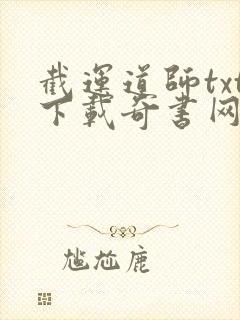 截運道師txt
下載奇書网
尴尬鹿